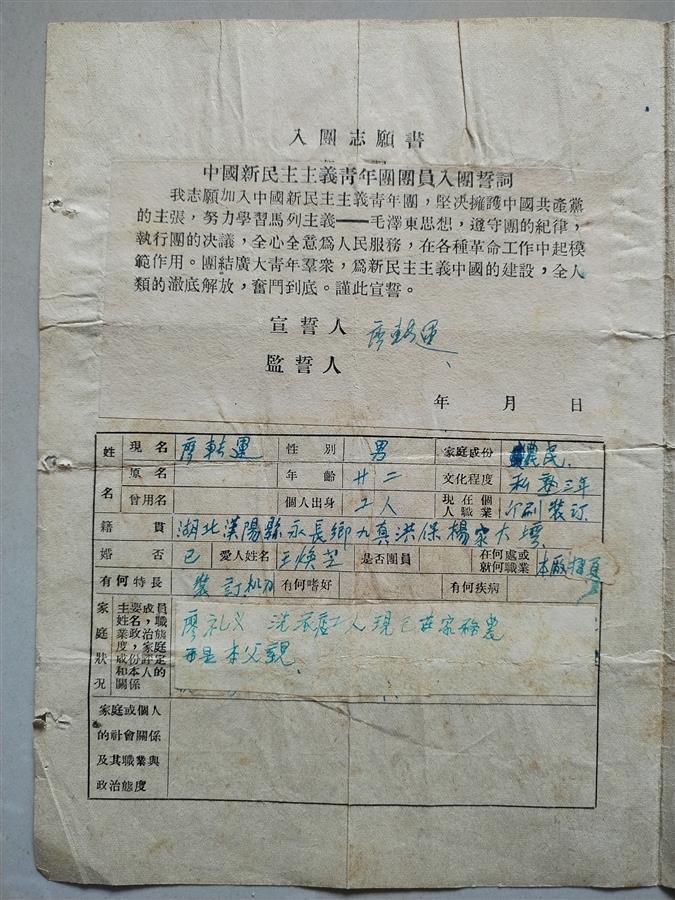 入團志願書
中國新民主主義靑年團團員入團誓詞
我志願加入中國新民主主義靑年團，堅决擁護中國共產黨
的主張，努力學習馬列主義——毛澤東思想，遵守團的紀律，
執行團的决議，全心全意爲人民服務，在各種革命工作中起模
範作用。團結廣大青年羣衆，爲新民主主義中國的建設，全人
類的澈底解放，奮鬥到底。謹此宣誓。
宣誓人 廖轉運
監誓人
年 月 日
姓名 現名 廖轉運 性別 男 家庭成份 農民.
原名 年齡 廿二 文化程度 私塾三年
曾用名 個人出身 工人 現在個人職業 印刷装订
籍貫 湖北漢陽縣永長鄉九真洪保楊家大塆
婚否 已 愛人姓名 王煥芝 是否團員 在何處或就何職業 本廠摺頁
有何特長 装訂机刀 有何嗜好 有何疾病
家庭狀況 主要成員姓名，職業政治態度，家庭成份評定和本人的關係
廖礼义 洗衣店工人現已在家務農
而是本父親
家庭或個人
的社會關係
及其職業與
政治態度